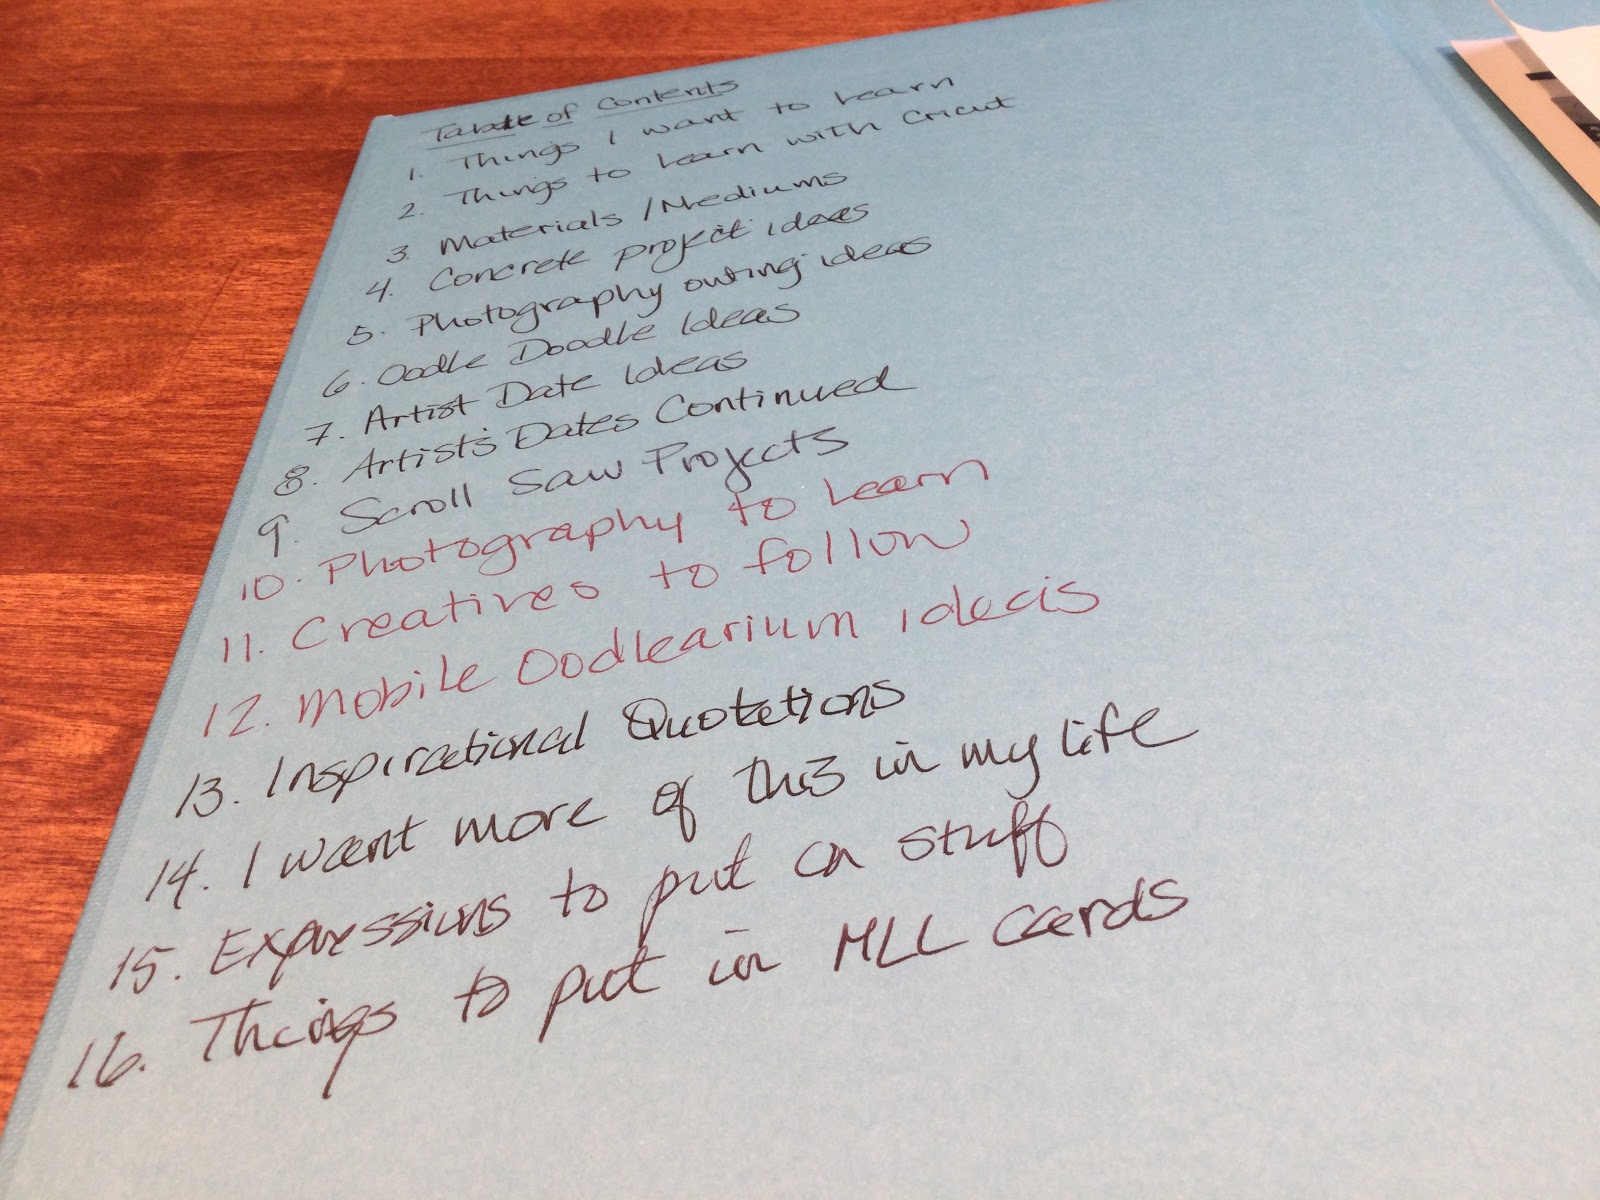 Table of Contents
1. Things I want to Learn
2. Things to Learn with Cricut
3. Materials / Mediums
4. Concrete project ideas
5. Photography outing ideas
6. Oodle Doodle Ideas
7. Artist Date Ideas
8. Artist's Dates Continued
9. Scroll Saw Projects
10. Photography to Learn
11. Creatives to follow
12. Mobile Oodlearium ideas
13. Inspirational Quotations
14. I want more of this in my life
15. Expressions to put on stuff
16. Things to put in MLL cards